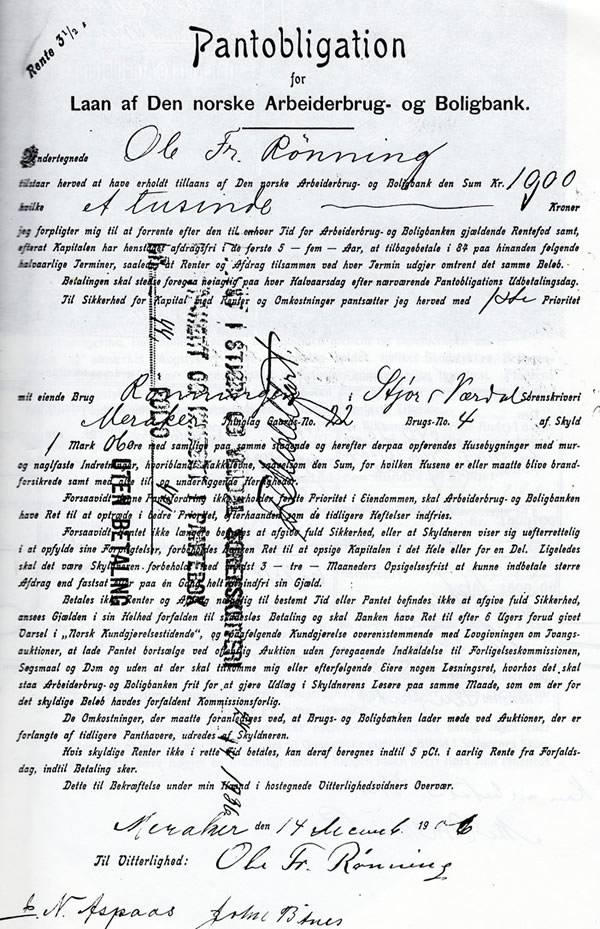 Rente 3 1/2
Pantobligation
for
Laan af Den norske Arbeiderbrug- og Boligbank.
Undertegnede Ole Fr. Rønning
tilstaar herved at have erholdt tillaans af Den norske Arbeiderbrug- og Boligbank den Sum Kr. 1000
hvilke et tusinde Kroner
jeg forpligter mig til at forrente efter den til enhver Tid for Arbeiderbrug- og Boligbanken gjældende Rentefod samt,
efterat Kapitalen har henstaaet afdragsfri i de første 5 - fem - Aar, at tilbagebetale i 84 paa hinanden følgende
halvaarlige Terminer, saaledes at Renter og Afdrag tilsammen ved hver Termin udgjør omtrent det samme Beløb.
Betalingen skal stedse foregaa nøiagtig paa hver Halvaarsdag efter nærværende Pantobligations Udbetalingsdag.
Til Sikkerhed for Kapital med Renter og Omkostninger pantsætter jeg herved med 1ste Prioritet
mit eiende Brug Rønningen i Stjør & Værdal Sorenskriveri
Meraker Thinglag Gaards-No. 22 Brugs-No. 4 af Skyld
1 Mark 06 Øre med samtlige paa samme staaende og herefter derpaa opførendes Husebygninger med mur-
og naglfaste Indretninger, hvoriblandt Kakkelovne, saavelsom den Sum, for hvilken Husene er eller maatte blive brand-
forsikrede samt med til og underliggende Herligheder.
Forsaavidt denne Pantfordring ikke erholder første Prioritet i Eiendommen, skal Arbeiderbrug- og Boligbanken
have Ret til at optræde i bedre Prioritet, efterhaanden som de tidligere Heftelser indfries.
Forsaavidt Pantet ikke længere befindes at afgive fuld Sikkerhed, eller at Skyldneren viser sig uefterrettelig
i at opfylde sine Forpligtelser, forbeholdes Banken Ret til at opsige Kapitalen i det Hele eller for en Del. Ligeledes
skal det være Skyldneren forbeholdt med mindst 3 - tre - Maaneders Opsigelsesfrist at kunne indbetale større
Afdrag end fastsat eller paa én Gang helt at indfri sin Gjæld.
Betales ikke Renter og Afdrag nøiagtig til bestemt Tid eller Pantet befindes ikke at afgive fuld Sikkerhed,
ansees Gjælden i sin Helhed forfalden til skadesløs Betaling og skal Banken have Ret til efter 6 Ugers forud givet
Varsel i „Norsk Kundgjørelsestidende“, og paafølgende Kundgjørelse overensstemmende med Lovgivningen om Tvangs-
auktioner, at lade Pantet bortsælge ved offentlig Auktion uden foregaaende Indkaldelse til Forligelseskommissionen,
Søgsmaal og Dom og uden at der skal tilkomme mig eller efterfølgende Eiere nogen Løsningsret, hvorhos det skal
staa Arbeiderbrug- og Boligbanken frit for at gjøre Udlæg i Skyldnerens Løsøre paa samme Maade, som om der for
det skyldige Beløb havdes forfaldent Kommissionsforlig.
De Omkostninger, der maatte foranlediges ved, at Brugs- og Boligbanken lader møde ved Auktioner, der er
forlangte af tidligere Panthavere, udredes af Skyldneren.
Hvis skyldige Renter ikke i rette Tid betales, kan deraf beregnes indtil 5 pCt. i aarlig Rente fra Forfalds-
dag, indtil Betaling sker.
Dette til Bekræftelse under min Haand i hostegnede Vitterlighedsvidners Overvær.
Meraker den 14 Decemb. 1906
Til Vitterlighed: Ole Fr. Rønning
N. Aspaas John
EFTER BETALING